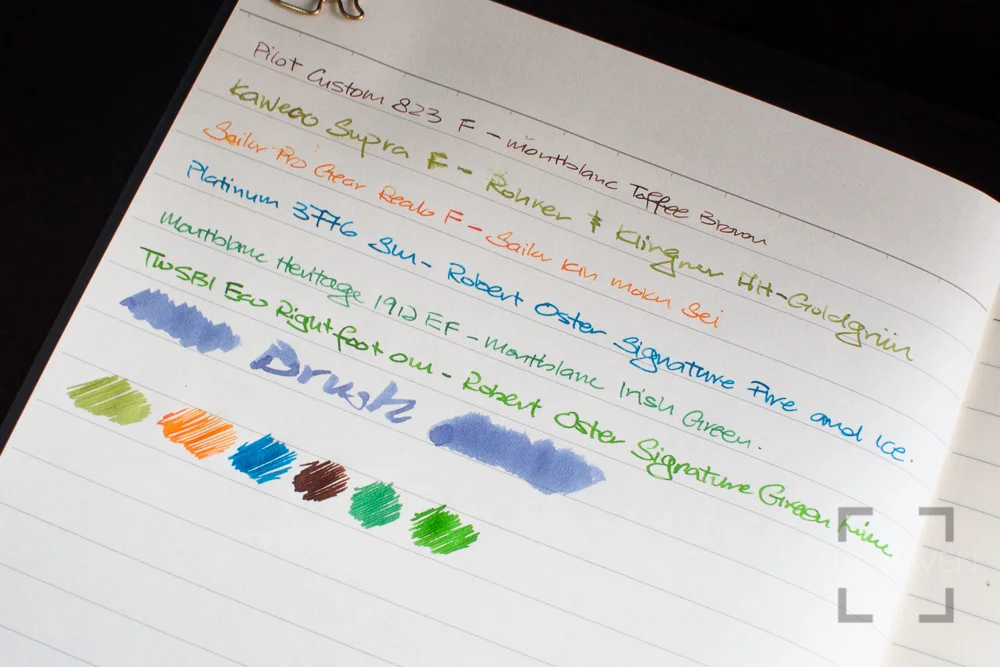 Pilot Custom 823 F - montblanc Toffee Brown
Kaweco Supra F - Rohrer & Klingner Alt-Goldgrün
Sailor Pro Gear Realo F - Sailor Kin Moku Sei
Platinum 3776 SM - Robert Oster Signature Fire and Ice.
Montblanc Heritage 1912 EF - Montblanc Irish Green.
TWSBI Eco Rightfoot OM - Robert Oster Signature Green Lime
Brush